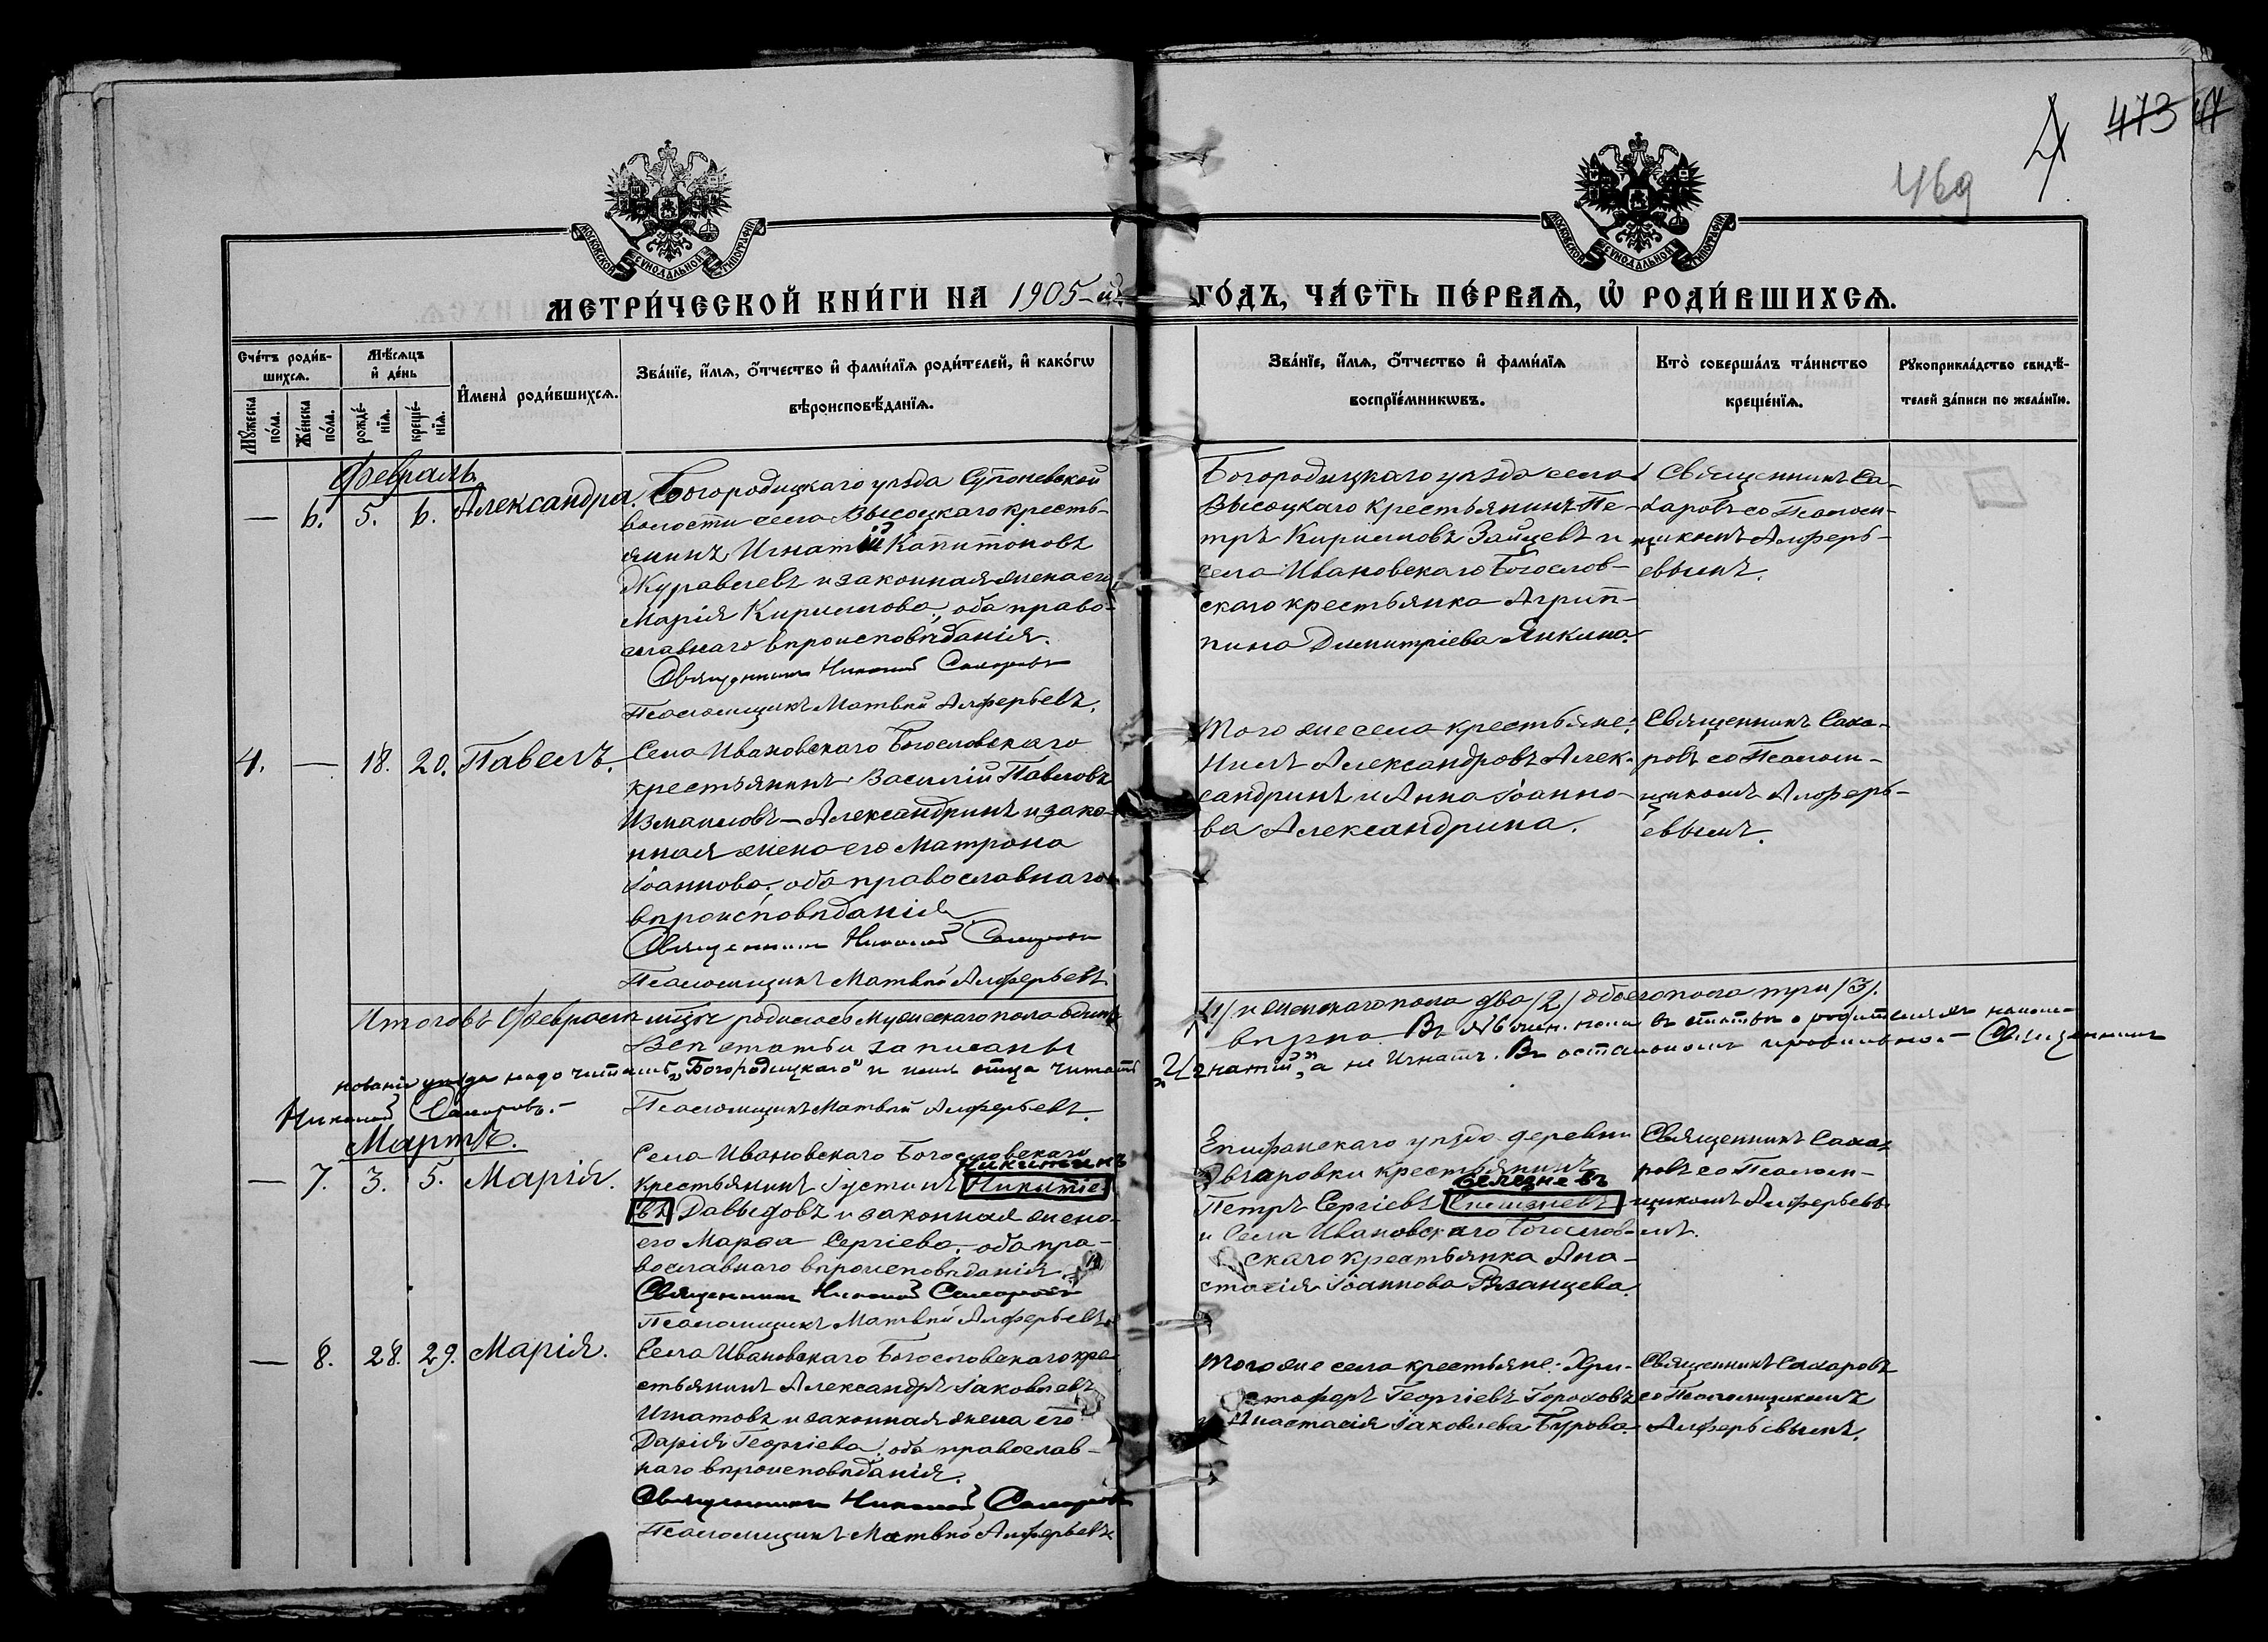 473 47
469
МОСКОВСКОЙ СѴНОДАЛЬНОЙ ТИПОГРАФІИ
МОСКОВСКОЙ СѴНОДАЛЬНОЙ ТИПОГРАФІИ
МЕТРИ́ЧЕСКОЙ КНИ́ГИ НА 1905-й
ГО́ДЪ, ЧА́СТЬ ПЕ́РВАѦ, Ѡ҆ РОДИ́ВШИХСѦ.
Сче́тъ роди́в-
шихсѧ.
Мѣ́сѧцъ
и҆ де́нь
Мꙋ́жеска
по́ла.
Же́нска
по́ла.
рожде́-
нїѧ.
креще́-
нїѧ.
И҆мена̀ роди́вшихсѧ.
Зва́нїе, и҆́мѧ, ѻ҆́тчество и҆ фами́лїѧ роди́телей, и҆ како́гѡ
вѣроисповѣ́данїѧ.
Зва́нїе, и҆́мѧ, ѻ҆́тчество и҆ фами́лїѧ
воспрїе́мникѡвъ.
Кто̀ соверша́лъ та́инство
креще́нїѧ.
Рꙋкоприкла́дство свидѣ́-
телей за́писи по жела́нїю.
Февраль.
— 6. 5. 6. Александра.
Богородицкаго уѣзда Супоневской
волости села Высоцкаго кресть-
янинъ Игнатій Капитоновъ
Журавлевъ и законная жена его
Марія Кириллова, оба право-
славнаго вѣроисповѣданія.
Священникъ Николай Сахаровъ
Псаломщикъ Матвѣй Алферьевъ.
Богородицкаго уѣзда села
Высоцкаго крестьянинъ Пе-
тръ Кирилловъ Зайцевъ и
села Ивановскаго Богослов-
скаго крестьянка Агрип-
пина Димитріева Янкина.
Священникъ Са-
харовъ со Псалом-
щикомъ Алферь-
евымъ.
4. — 18. 20. Павелъ.
Села Ивановскаго Богословскаго
крестьянинъ Василій Павловъ
Измаиловъ-Александринъ и зако-
нная жена его Матрона
Іоаннова, оба православнаго
вѣроисповѣданія.
Священникъ Николай Сахаровъ
Псаломщикъ Матвѣй Алферьевъ
Того же села крестьяне:
Нилъ Александровъ Алек-
сандринъ и Анна Іоанно-
ва Александрина.
Священникъ Саха-
ровъ со Псалом-
щикомъ Алферь-
евымъ.
Итого въ Февралѣ мѣсяцѣ родилось мужескаго пола одинъ
/1/ и женскаго пола два /2/ обоего пола три /3/.
Всѣ статьи записаны
вѣрно. Въ №6 жен. пола въ статьѣ о родителяхъ наиме-
нованіе уѣзда надо читать „Богородицкаго" и имя отца читать
„Игнатій", а не Игнатъ. Въ остальномъ правильно. — Священникъ
Николай Сахаровъ. —
Псаломщикъ Матвѣй Алферьевъ.
Мартъ.
— 7. 3. 5. Марія.
Села Ивановскаго Богословскаго
Никитинъ
крестьянинъ Іустинъ Никитіе
въ Давыдовъ и законная жена
его Марѳа Сергіева, оба пра-
вославнаго вѣроисповѣданія
Священникъ Николай Сахаровъ
Псаломщикъ Матвѣй Алферьевъ.
Епифанскаго уѣзда деревни
Овчаровки крестьянинъ
Селезневъ
Петръ Сергіевъ
и Села Ивановскаго Богослов-
скаго крестьянка Ана-
стасія Іоаннова Рязанцева.
Священникъ Саха-
ровъ со Псалом-
щикомъ Алферьевы-
мъ.
— 8. 28. 29. Марія.
Села Ивановскаго Богословскаго кре-
стьянинъ Александръ Іаковлевъ
Игнатовъ и законная жена его
Дарія Георгіева, оба православ-
наго вѣроисповѣданія.
Священникъ Николай Сахаровъ
Псаломщикъ Матвѣй Алферьевъ
Того же села крестьяне: Хри-
стофоръ Георгіевъ Гороховъ
и Анастасія Іаковлева Бурова.
Священникъ Сахаровъ
со Псаломщикомъ
Алферьевымъ.